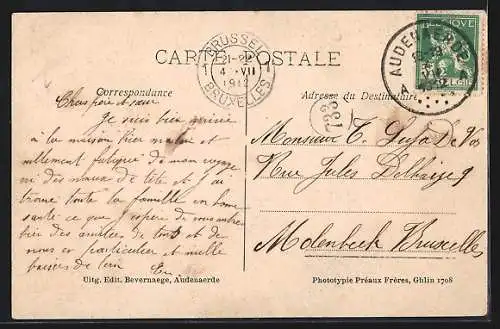 CARTE POSTALE
BRUSSEL
21-22
4 VII
1912
BRUXELLES
BELGIQUE
AUDENAERDE
Correspondance
Adresse du Destinataire
733
Chers père et sœur
Je suis bien arrivée
à la maison hier matin et
nullement fatiguée de mon voyage
ni des maux de tête et j'ai
trouvé toute la famille en bonne
santé ce que j'espère de vous
bien des amitiés de tous et de
nous en particulier et mille
baisers de loin
Monsieur T. De Vos
Rue Jules Delhaize 9
Molenbeek Bruxelles
Uitg. Edit. Bevernaege, Audenaerde
Phototypie Préaux Frères, Ghlin 1708